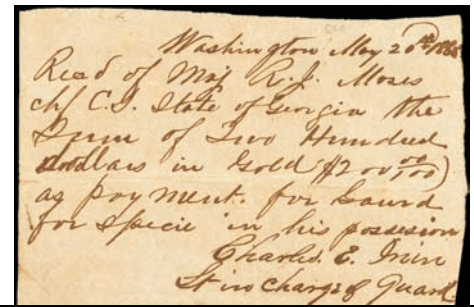 Washington May 20th 1865
Recd of Maj R. J. Moses
chf C.S. State of Georgia the
Sum of Two Hundred
dollars in Gold ($200 00/100)
as payment. for Guard
for specie in his possesion
Charles. E. Irvin
Lt in charge of Guard